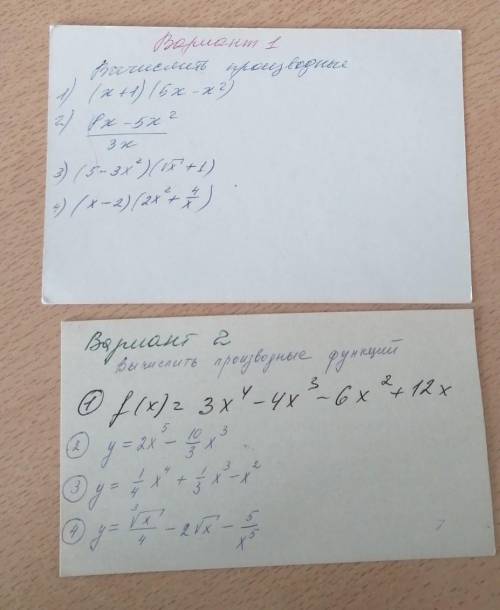 Вариант 1
Вычислить производные
1) (x+1)(5x-x²)
2) (8x-5x²)/3x
3) (5-3x²)(√x+1)
4) (x-2)(2x²+4/x)
Вариант 2
Вычислить производные функций
① f(x)= 3x⁴-4x³-6x²+12x
② y=2x⁵-10/3x³
③ y=1/4x⁴+1/3x³-x²
④ y=∛x/4-2√x-5/x⁵